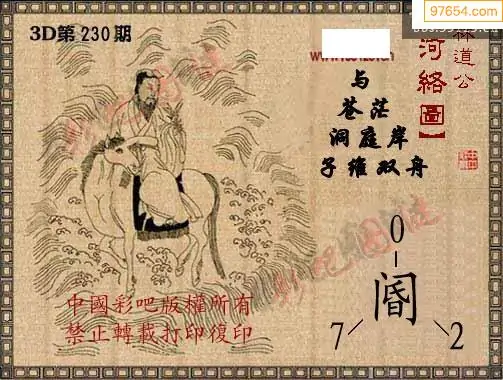 97654.com
3D第230期
林道公
河络圖】
与
苍茫
洞庭岸
子维双舟
0
阍
7
2
中國彩吧版權所有
禁止轉載打印復印